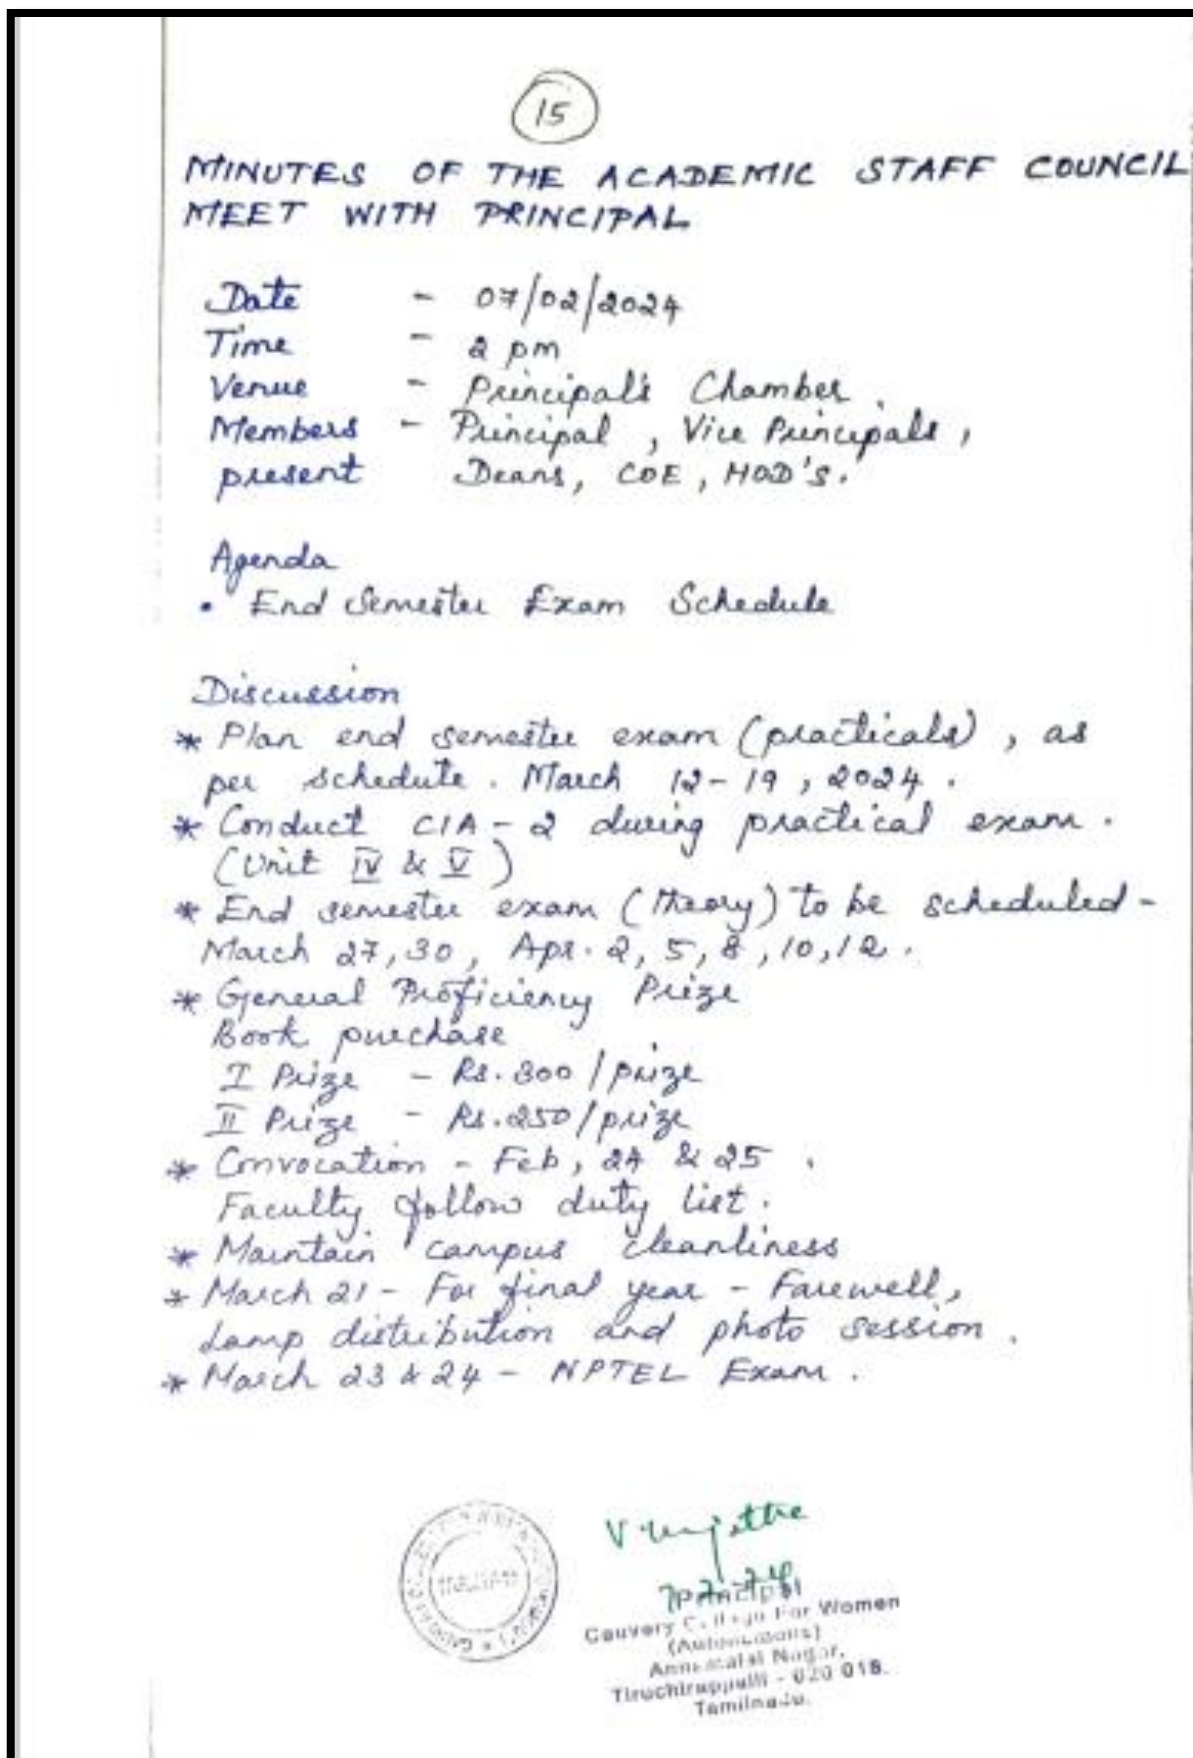 15
MINUTES OF THE ACADEMIC STAFF COUNCIL
MEET WITH PRINCIPAL
Date - 07/02/2024
Time - 2 pm
Venue - Principal's Chamber.
Members - Principal, Vice Principals,
present Deans, COE, HOD's.
Agenda
• End Semester Exam Schedule
Discussion
* Plan end semester exam (practicals), as
per schedule. March 12-19, 2024.
* Conduct CIA-2 during practical exam.
(Unit IV & V)
* End semester exam (theory) to be scheduled -
March 27,30, Apr. 2, 5, 8, 10, 12.
* General Proficiency Prize
Book purchase
I Prize - Rs.300/prize
II Prize - Rs.250/prize
* Convocation - Feb, 24 & 25.
Faculty follow duty list.
* Maintain campus cleanliness
* March 21 - For final year - Farewell,
Lamp distribution and photo session.
* March 23 & 24 - NPTEL Exam.
7.2.24
Principal
Cauvery College For Women
(Autonomous)
Annamalai Nagar,
Tiruchirappalli - 620 018.
Tamilnadu.